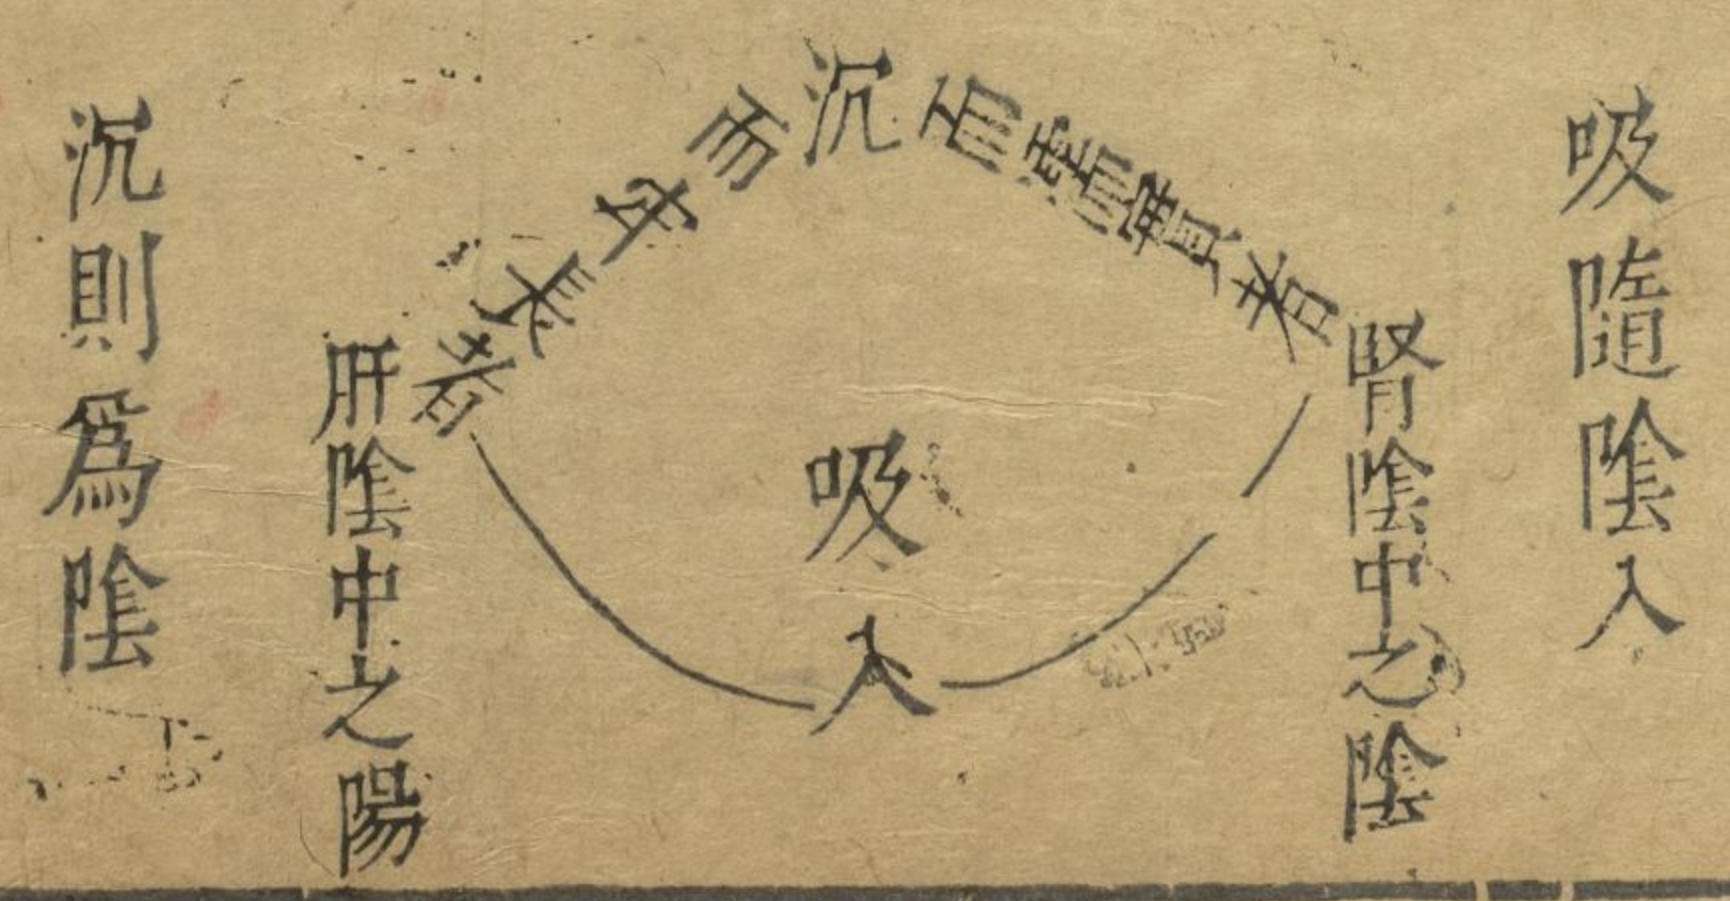 吸隨陰入
腎陰中之陰
沉
而濡實者
而牢長者
吸入
肝陰中之陽
沉則爲陰